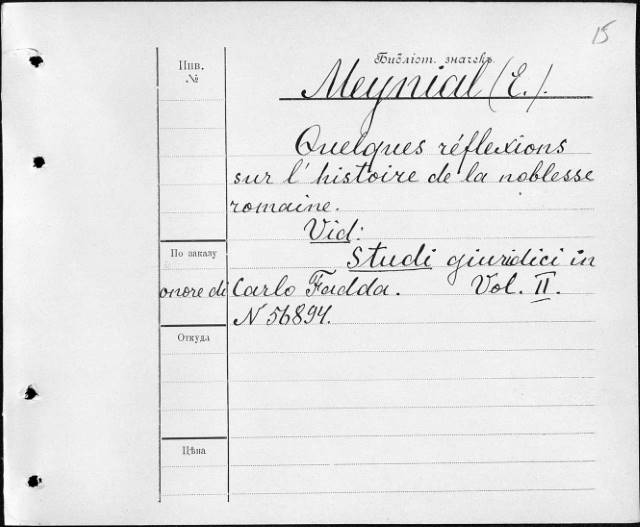 15
Инв.
№
Библіот. значекъ
Meynial (E.).
Quelques réflexions
sur l'histoire de la noblesse
romaine.
Vid:
По заказу
Studi giuridici in
onore di Carlo Fadda. Vol. II.
N 56894.
Откуда
Цѣна